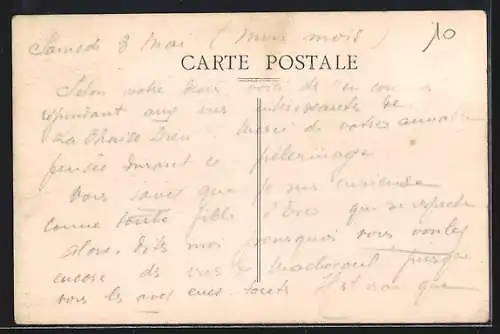 Samedi 8 Mai (Mon mois)
10
CARTE POSTALE
Selon votre désir voici de
répondant aux vues intéressantes de
La Chaise Dieu. Merci de votre aimable
pensée durant ce pèlerinage
Vous savez que je suis curieuse
comme toute fille d'Eve qui se respecte
Alors dites moi pourquoi vous voulez
encore des vues de puisque
vous les avez Il est vrai que